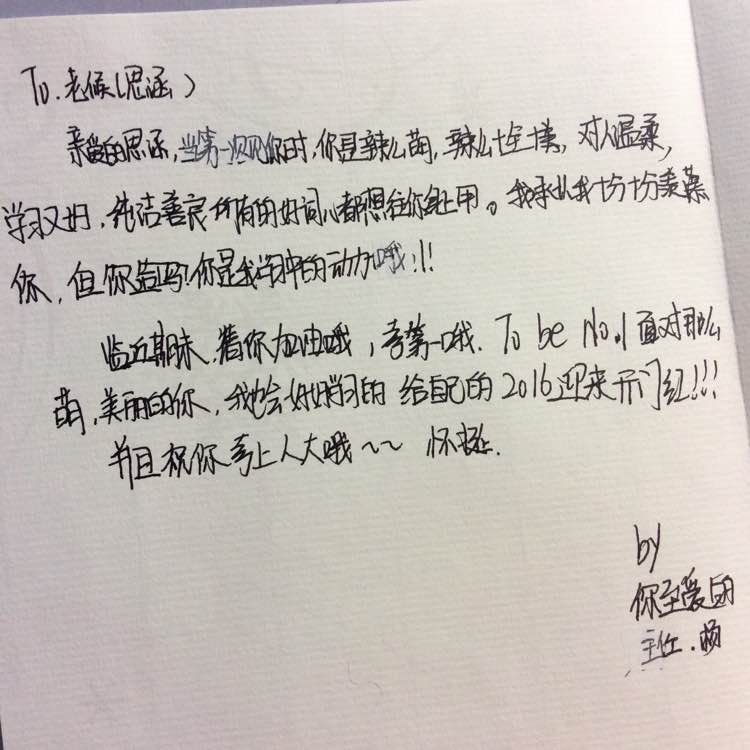 To.老候(思涵)
亲爱的思涵,当第一次见你时,你是辣么萌,辣么十全十美,对人温柔,
学习又好,纯洁善良,所有的好词儿都想往你身上用。我承认我十分十分羡慕
你,但你造吗!你是我学习的动力哦!!!
临近期末,着你加油哦,考第一哦. To be No.1 面对那么
萌,美丽的你,我也会好好学习的 给自己的2016迎来开门红!!!
并且祝你考上人大哦~~
by
你至爱的
主任.